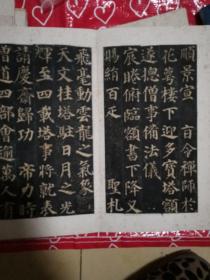 順景宣　百令禪師於
花萼樓下迎多寶塔額
遂總僧事備法儀
宸眷俯臨額書下降又
賜絹百疋　　聖札
飛毫動雲龍之氣
天文挂塔駐日月之光
至四載塔事將就表
請慶齋歸功　帝力時
僧道四部會逾萬人有